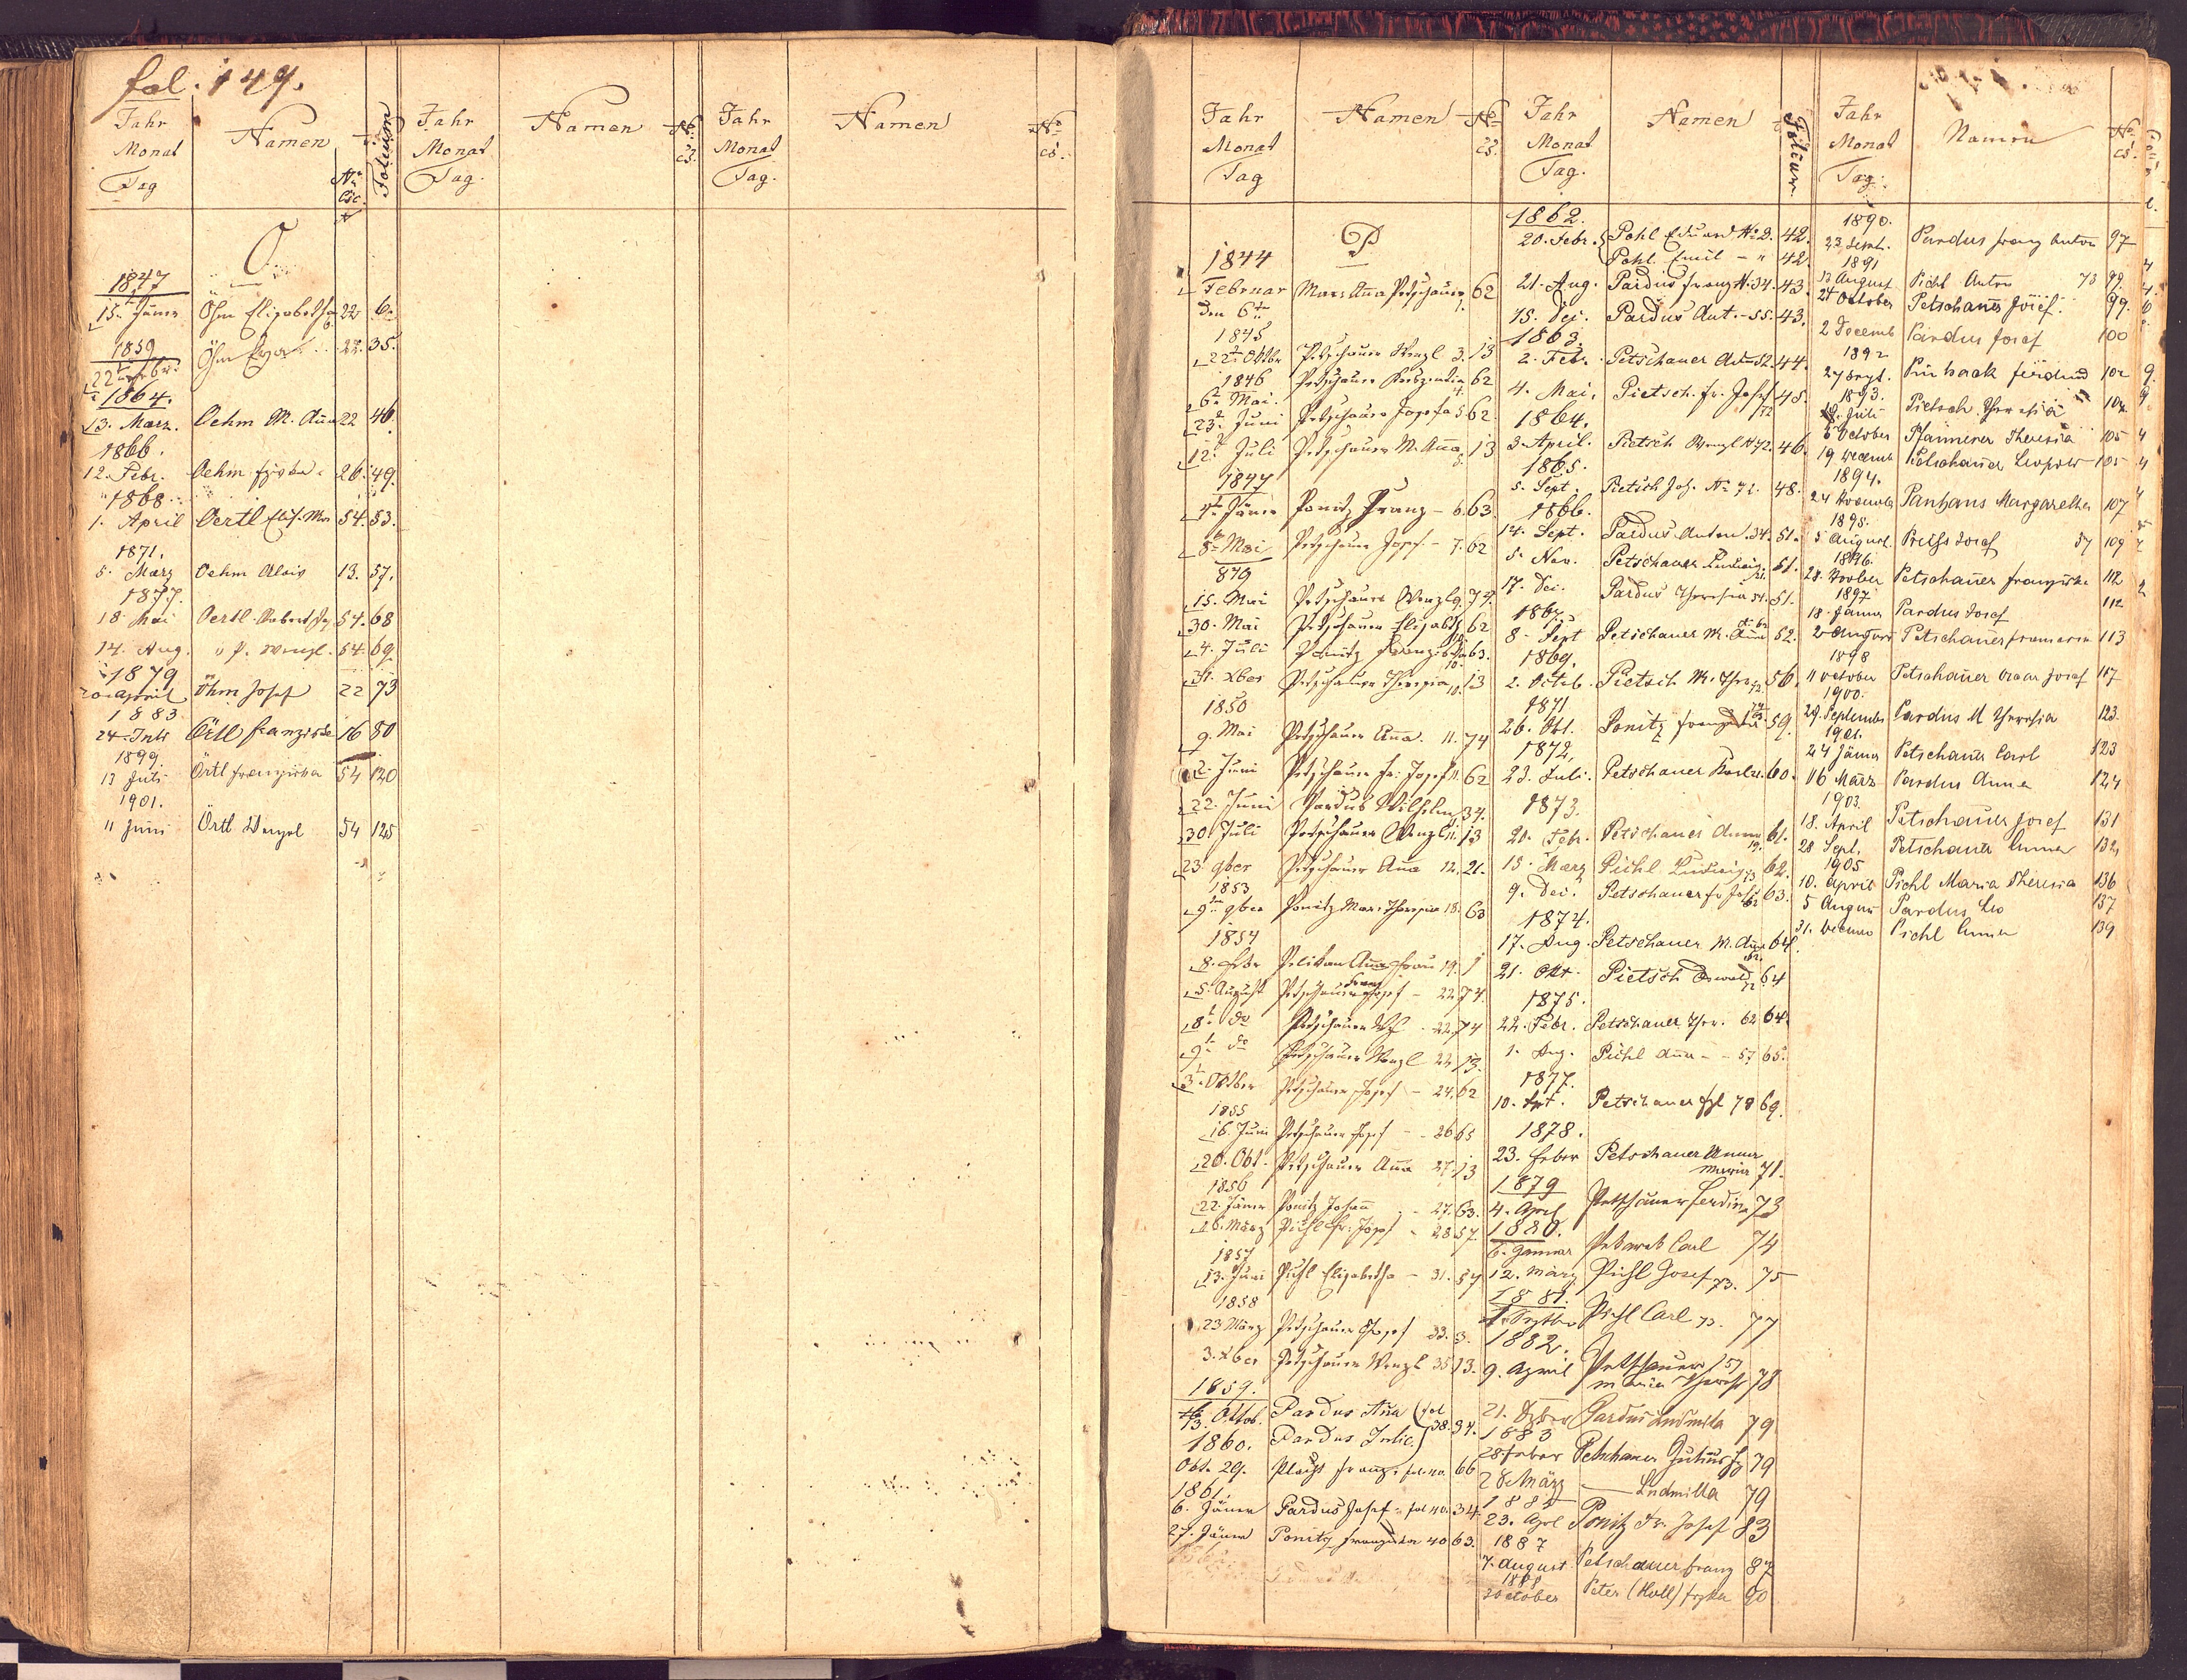 fol. 149.
Jahr Monat Tag
Namen
No Csc.
Folium
Jahr Monat Tag.
Namen
No cs.
Jahr Monat Tag.
Namen
No cs.
O
1847
15. Jäner Öhm Elisabetha 22 6.
1859
Öhm 22. 35.
1864.
13. März. Oehm M. Aña 22 46.
1866.
12. Febr. Oehm 26. 49.
1868
1. April Oertl 54. 53.
1871.
5. März Oehm Alois 13. 57.
1877.
18. Mai Oertl 54. 68
14. Aug. " 54. 69
1879
20 April Öhm Josef 22 73
1883
24 Örtl Franziska 16 80
1899.
13 Juli Örtl Franziska 54 120
1901.
11 Juni Örtl Wenzel 54 125
Jahr Monat Tag
Namen
No cs.
Jahr Monat Tag.
Namen
Folium
Jahr Monat Tag.
Namen
No cs.
P
1844
Februar den 6t Petschauer 62
1845
22 Oktbr. Petschauer Wenzl 3. 13
1846
6. Mai. Petschauer 62
23. Juni Petschauer Josefa 5. 62
12. Juli Petschauer M. Aña. 13
1847
Jäner Ponitz Franz - 6. 63.
8. Mai Petschauer Josef - 7. 62
849
15. Mai Petschauer Wenzl 9. 74.
30. Mai Petschauer Elisabeth 62
4. Juli Ponitz 63.
31. xber Petschauer Theresia 10. 13
1850
9. Mai Petschauer Aña. 11. 74
2. Juni Petschauer Fr. Josef 11. 62
22. Juni Pardus Wilhelm 34.
30. Juli Petschauer Wenzl 11. 13
23. 9ber Petschauer Aña 12. 21.
1853
9. 9ber Ponitz Mar. Theresia 18. 63
1854
8. Pelikan Aña 19. 1
5. August Petschauer Franz Josef - 22. 74.
8. do Petschauer - 22. 74
9. do Petschauer Wenzl 22. 13.
3. Oktber Petschauer Josef - 24. 62
1855
16. Juni Petschauer Josef - 26 65
20. Okt. Petschauer Aña 27. 13
1856
22. Jäner Ponitz Johañ - 27. 63.
26. März Pichl Fr. Josef - 28. 57.
1857
13. Juni Pichl Elisabetha - 31. 57
1858
23 März Petschauer Josef 33. 3.
3. xber Petschauer Wenzl 35. 13.
1859.
13. Oktob. Pardus Aña (fol 38. 34.
1860. Pardus Julie.)
Okt. 29. Franz. fol. 40. 66
1861.
6. Jäner Pardus Josef - fol 40. 34
27. Jäner Ponitz Franziska 40 63.
1862.
20. Febr. Pohl Eduard No 2. 42.
Pohl Emil - " 42.
21. Aug. Pardus Franz N. 34. 43.
15. Dez. Pardus Ant. - 55. 43.
1863.
2. Febr. Petschauer 44.
4. Mai. Pietsch Fr. Josef 72 45.
1864.
3. April. Pietsch Wenzl N 72. 46.
1865.
5. Sept. Pietsch Joh. No 72. 48.
1866.
14. Sept. Pardus Anton. 34. 51.
5. Nov. Petschauer Ludwig 51.
17. Dez. Pardus Theresia 34. 51.
1867.
8. Sept Petschauer M. Aña 52.
1869.
2. Octob. Pietsch M. Ther. 72. 56.
1871
26. Okt. Ponitz Franziska 59.
1872.
23. Juli. Petschauer 60.
1873.
20. Febr. Petschauer Anna 19. 61.
15. März Pichl Ludwig 73 62.
9. Dez. Petschauer Fr. Josef 62 63.
1874.
17. Aug. Petschauer M. Aña 62. 64.
21. Okt. Pietsch Oswald 72 64
1875.
22. Febr. Petschauer Ther. 62 64.
1. Aug. Pichl Aña - - 57 65.
1877.
10. Petschauer 78 69.
1878.
23. Feber Petschauer Anna Maria 71.
1879
4. April Petschauer Ferdin. 73
1880.
6. Januar Carl 74
12. März Pichl Josef 73. 75
1881.
Pichl Carl 73. 77
1882.
9. April Petschauer 57 Maria Theresi 78
21. Pardus Ludmilla 79
1883
28 Feber Petschauer 79
28 März — Ludmilla 79
23. April Ponitz Fr. Josef 83
1887
7. August Petschauer Franz 87
1888
30 October Peter (Holl) 90
1890.
23 Sept. Pardus Franz Anton 97
1891
13 August Pichl Anton 73 99.
24 October Petschauer Josef. 99.
2 Decemb Pardus Josef 100
1892
27 Sept. Ferdinand 102
1893.
Juli Pietsch Theresia 104
8 October Pfannerer Theresia 105
19 Decemb Petschauer Leopold 105
1894.
24 Novemb Panhans Margaretha 107
1895.
5 August Josef 57 109
1896.
28. November Petschauer Franziska 112
1897
18. Jänner Pardus Josef 112
2 August Petschauer 113
1898
11 October Petschauer Oscar Josef 117
1900.
29. September Pardus M Theresia 123
1901.
24 Jäner Petschauer Carl 123
16 März Pardus Anna 124
1903.
18. April Petschauer Josef 131
28 Sept. Petschauer Anna 132
1905
10. April Pichl Maria Theresia 136
5 August Pardus Leo 137
31. Pichl Anna 139